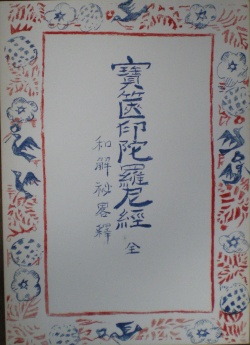 寶篋印陀羅尼經 全
和解祕畧釋